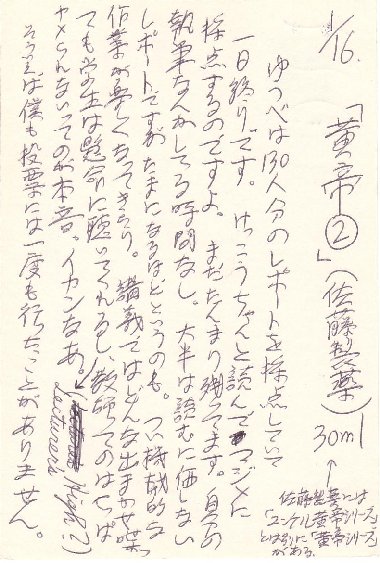 1/16.
「黄帝②」(佐藤製薬) 30ml
佐藤製薬には
「ユンケル黄帝シリーズ」
とは別に「黄帝シリーズ」
がある。
ゆうべは130人分のレポートを採点していて
一日終りです。けっこうちゃんと読んでマジメに
採点するのですよ。まだたんまり残ってます。自分の
執筆なんかしてる時間なし。大半は読むに価しない
レポートですがたまになるほどというのも。つい機械的な
作業が早くなってきちゃう。講義ではどんな出まかせ喋っ
ても学生は懸命に聴いてくれるし、教師ってのはやっぱ
ヤメられないってのが本音、イカンなあ。
Lecturer's High?)
そういえば僕も投票には一度も行ったことがありません。